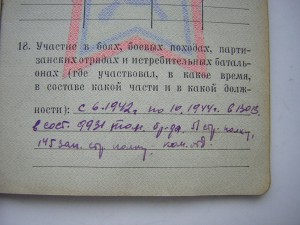 18. Участие в боях, боевых походах, парти-
занских отрядах и истребительных баталь-
онах (где участвовал, в какое время,
в составе какой части и в какой долж-
ности): с 6.1942г по 10.1944г. в ВОВ
в сост. 9931 бр-да, 51 стр. полку,
145 зап. стр. полку. ком. отд.